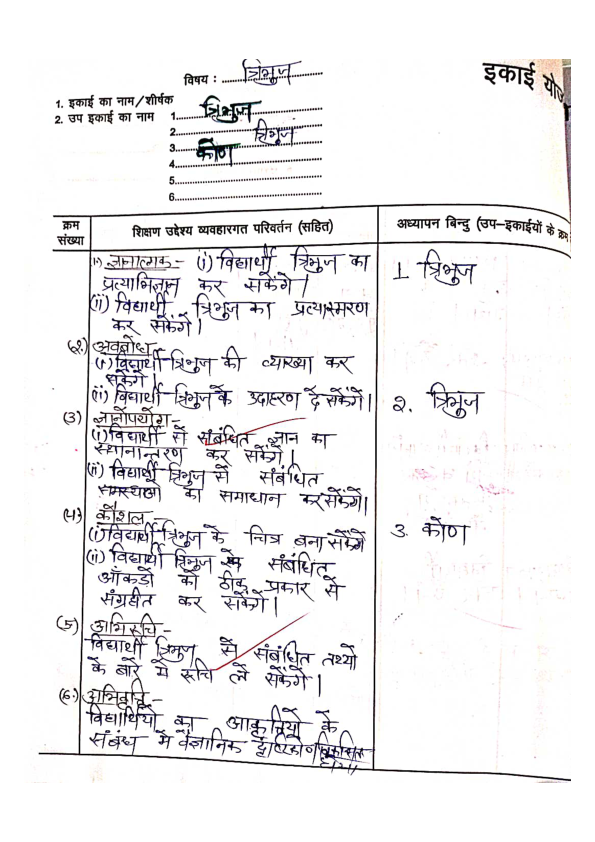 इकाई योज
विषय : त्रिभुज
1. इकाई का नाम/शीर्षक
2. उप इकाई का नाम
1. त्रिभुज
2. त्रिभुज
3. कोण
4.
5.
6.
क्रम संख्या
शिक्षण उद्देश्य व्यवहारगत परिवर्तन (सहित)
अध्यापन बिन्दु (उप-इकाईयों के क्रम
(1) ज्ञानात्मक :- (i) विद्यार्थी त्रिभुज का
प्रत्याभिज्ञान कर सकेंगे।
(ii) विद्यार्थी त्रिभुज का प्रत्यास्मरण
कर सकेंगे।
(2.) अवबोध -
(i) विद्यार्थी त्रिभुज की व्याख्या कर
सकेंगे।
(ii) विद्यार्थी त्रिभुज के उदाहरण दे सकेंगे।
(3) ज्ञानोपयोग :-
(i) विद्यार्थी से संबंधित ज्ञान का
स्थानान्तरण कर सकेंगे।
(ii) विद्यार्थी त्रिभुज से संबंधित
समस्याओ का समाधान कर सकेंगे।
(4) कौशल :-
(i) विद्यार्थी त्रिभुज के चित्र बना सकेंगे
(ii) विद्यार्थी त्रिभुज से संबंधित
आँकडो को ठीक प्रकार से
संग्रहीत कर सकेंगे।
(5) अभिरूचि :-
विद्यार्थी त्रिभुज से संबंधित तथ्यो
के बारे में रूचि ले सकेंगे।
(6.) अभिवृत्ति :-
विद्यार्थियो का आकृतियो के
संबंध में वैज्ञानिक दृष्टिकोण विकसित
होगा।
1. त्रिभुज
2. त्रिभुज
3. कोण